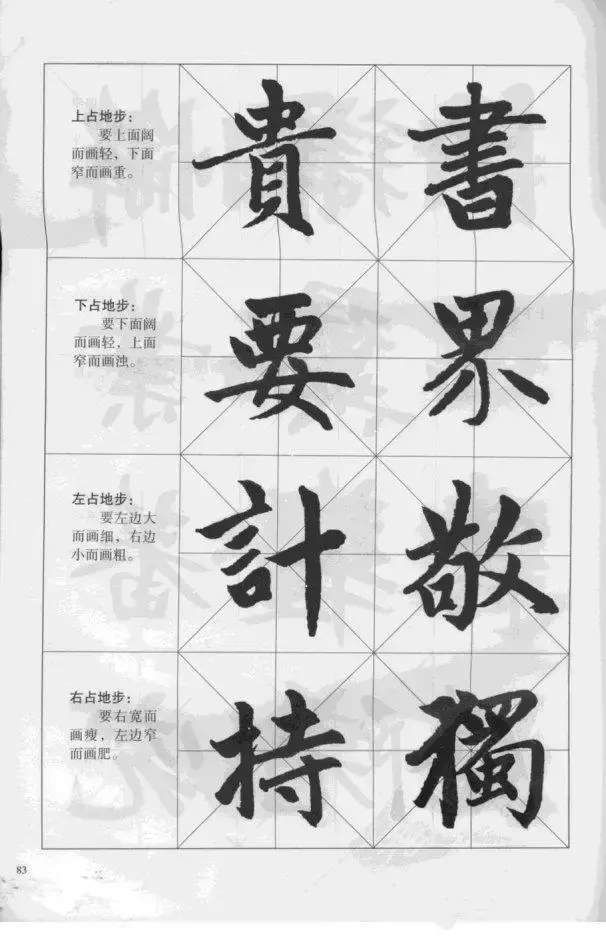 上占地步：
要上面阔
而画轻，下面
窄而画重。
貴 書
下占地步：
要下面阔
而画轻，上面
窄而画浊。
要 界
左占地步：
要左边大
而画细，右边
小而画粗。
計 敬
右占地步：
要右宽而
画瘦，左边窄
而画肥。
持 獨
83